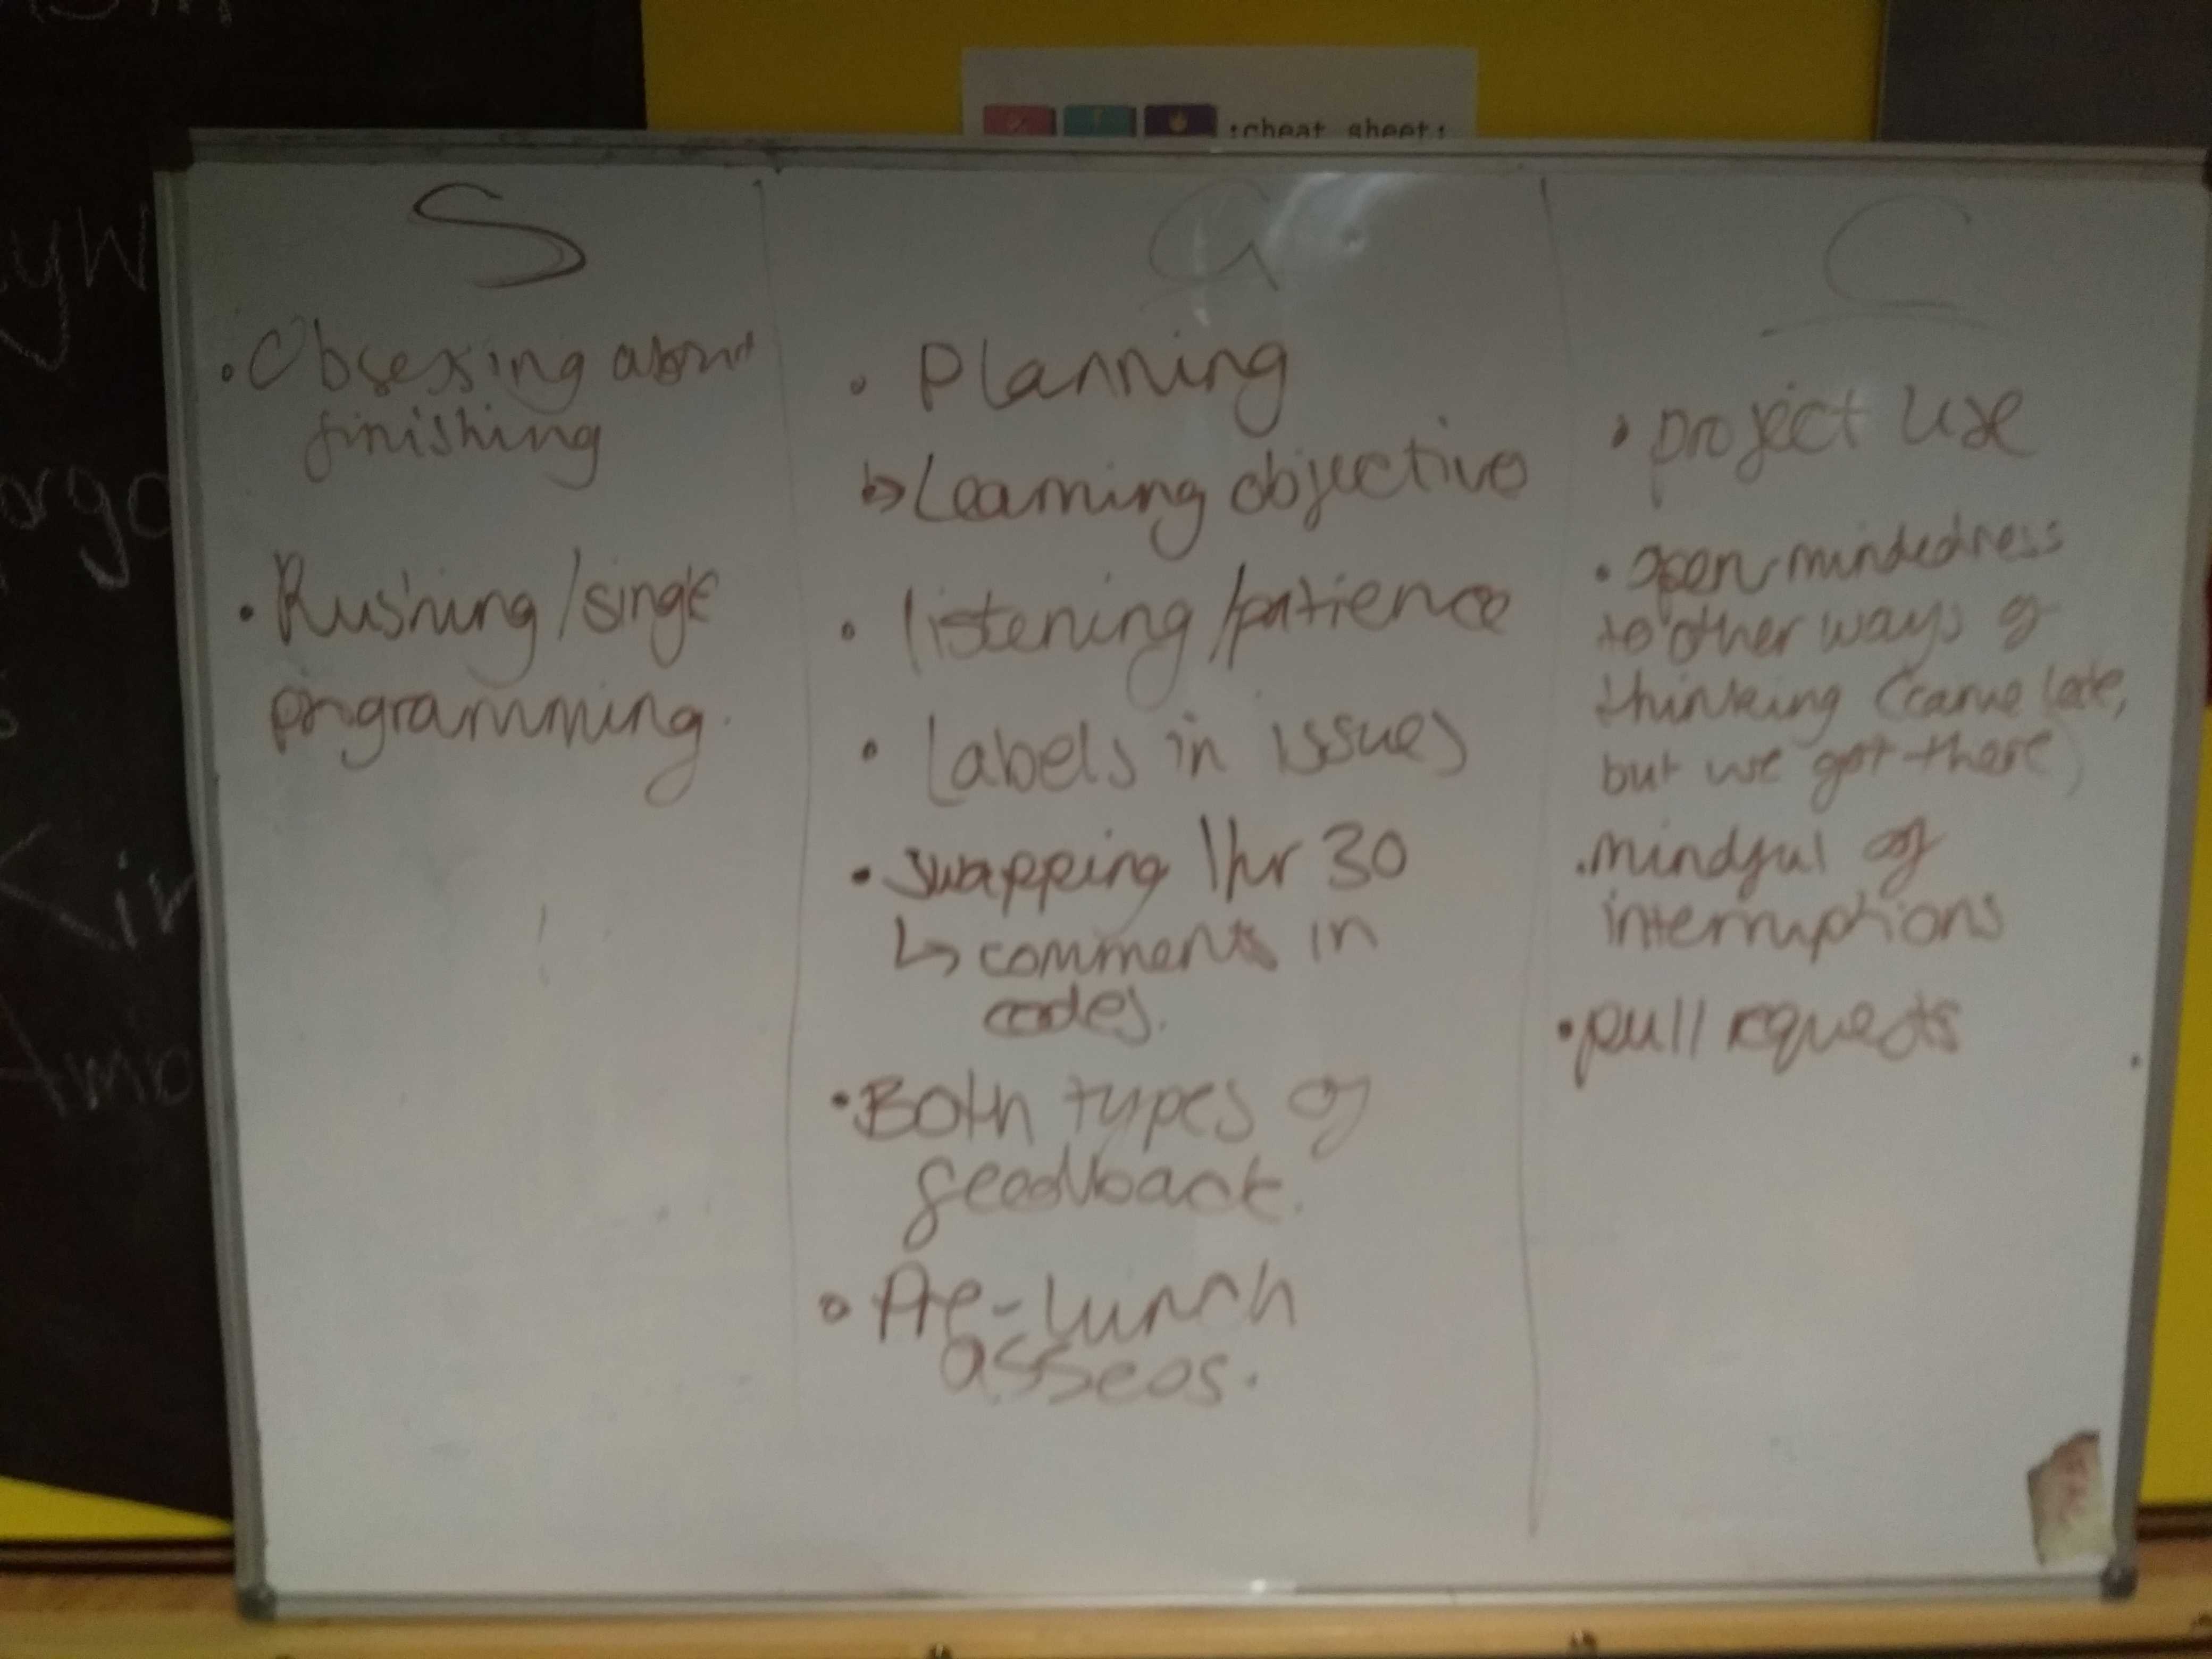 :cheat sheet:
S
• Obsessing about
finishing
• Rushing/single
programming.
G
• Planning
↳ Learning objective
• listening/patience
• Labels in issues
• Swapping 1hr 30
↳ comments in
codes.
• Both types of
feedback.
• Pre-lunch
C
• project use
• open-mindedness
to other ways of
thinking (came late,
but we got there)
• mindful of
interruptions
• pull requests